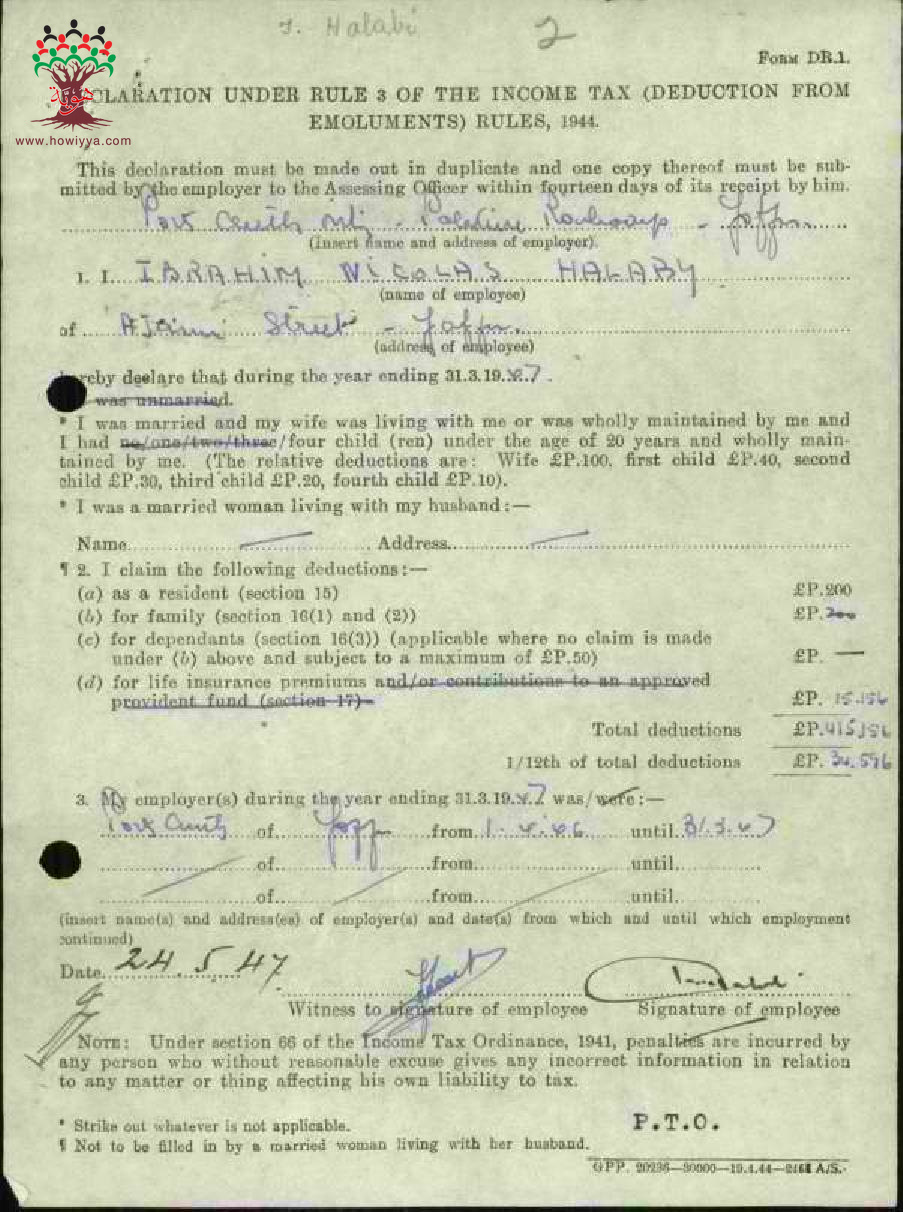 J. Halabi 2
FORM DR.1.
هوية
www.howiyya.com
CLARATION UNDER RULE 3 OF THE INCOME TAX (DEDUCTION FROM
EMOLUMENTS) RULES, 1944.
This declaration must be made out in duplicate and one copy thereof must be sub-
mitted by the employer to the Assessing Officer within fourteen days of its receipt by him.
Port - Palestine Railways - Jaffa
(insert name and address of employer).
1. I. IBRAHIM NICOLAS HALABY
(name of employee)
of Ajami Street - Jaffa.
(address of employee)
hereby declare that during the year ending 31.3.1947.
was unmarried.
* I was married and my wife was living with me or was wholly maintained by me and
I had no/one/two/three/four child (ren) under the age of 20 years and wholly main-
tained by me. (The relative deductions are: Wife £P.100, first child £P.40, second
child £P.30, third child £P.20, fourth child £P.10).
* I was a married woman living with my husband:—
Name Address
¶ 2. I claim the following deductions:—
(a) as a resident (section 15) £P.200
(b) for family (section 16(1) and (2)) £P.200
(c) for dependants (section 16(3)) (applicable where no claim is made
under (b) above and subject to a maximum of £P.50) £P. —
(d) for life insurance premiums and/or contributions to an approved
provident fund (section 17) £P. 15.156
Total deductions £P.415,156
1/12th of total deductions £P. 34.596
3. My employer(s) during the year ending 31.3.1947 was/were:—
Port of Jaffa from 1.4.46 until 31.3.47
of from until
of from until
(insert name(s) and address(es) of employer(s) and date(s) from which and until which employment
continued)
Date 24.5.47.
Witness to signature of employee Signature of employee
NOTE: Under section 66 of the Income Tax Ordinance, 1941, penalties are incurred by
any person who without reasonable excuse gives any incorrect information in relation
to any matter or thing affecting his own liability to tax.
* Strike out whatever is not applicable. P.T.O.
¶ Not to be filled in by a married woman living with her husband.
GPP. 20236—30000—19.4.44—2464 A/S.